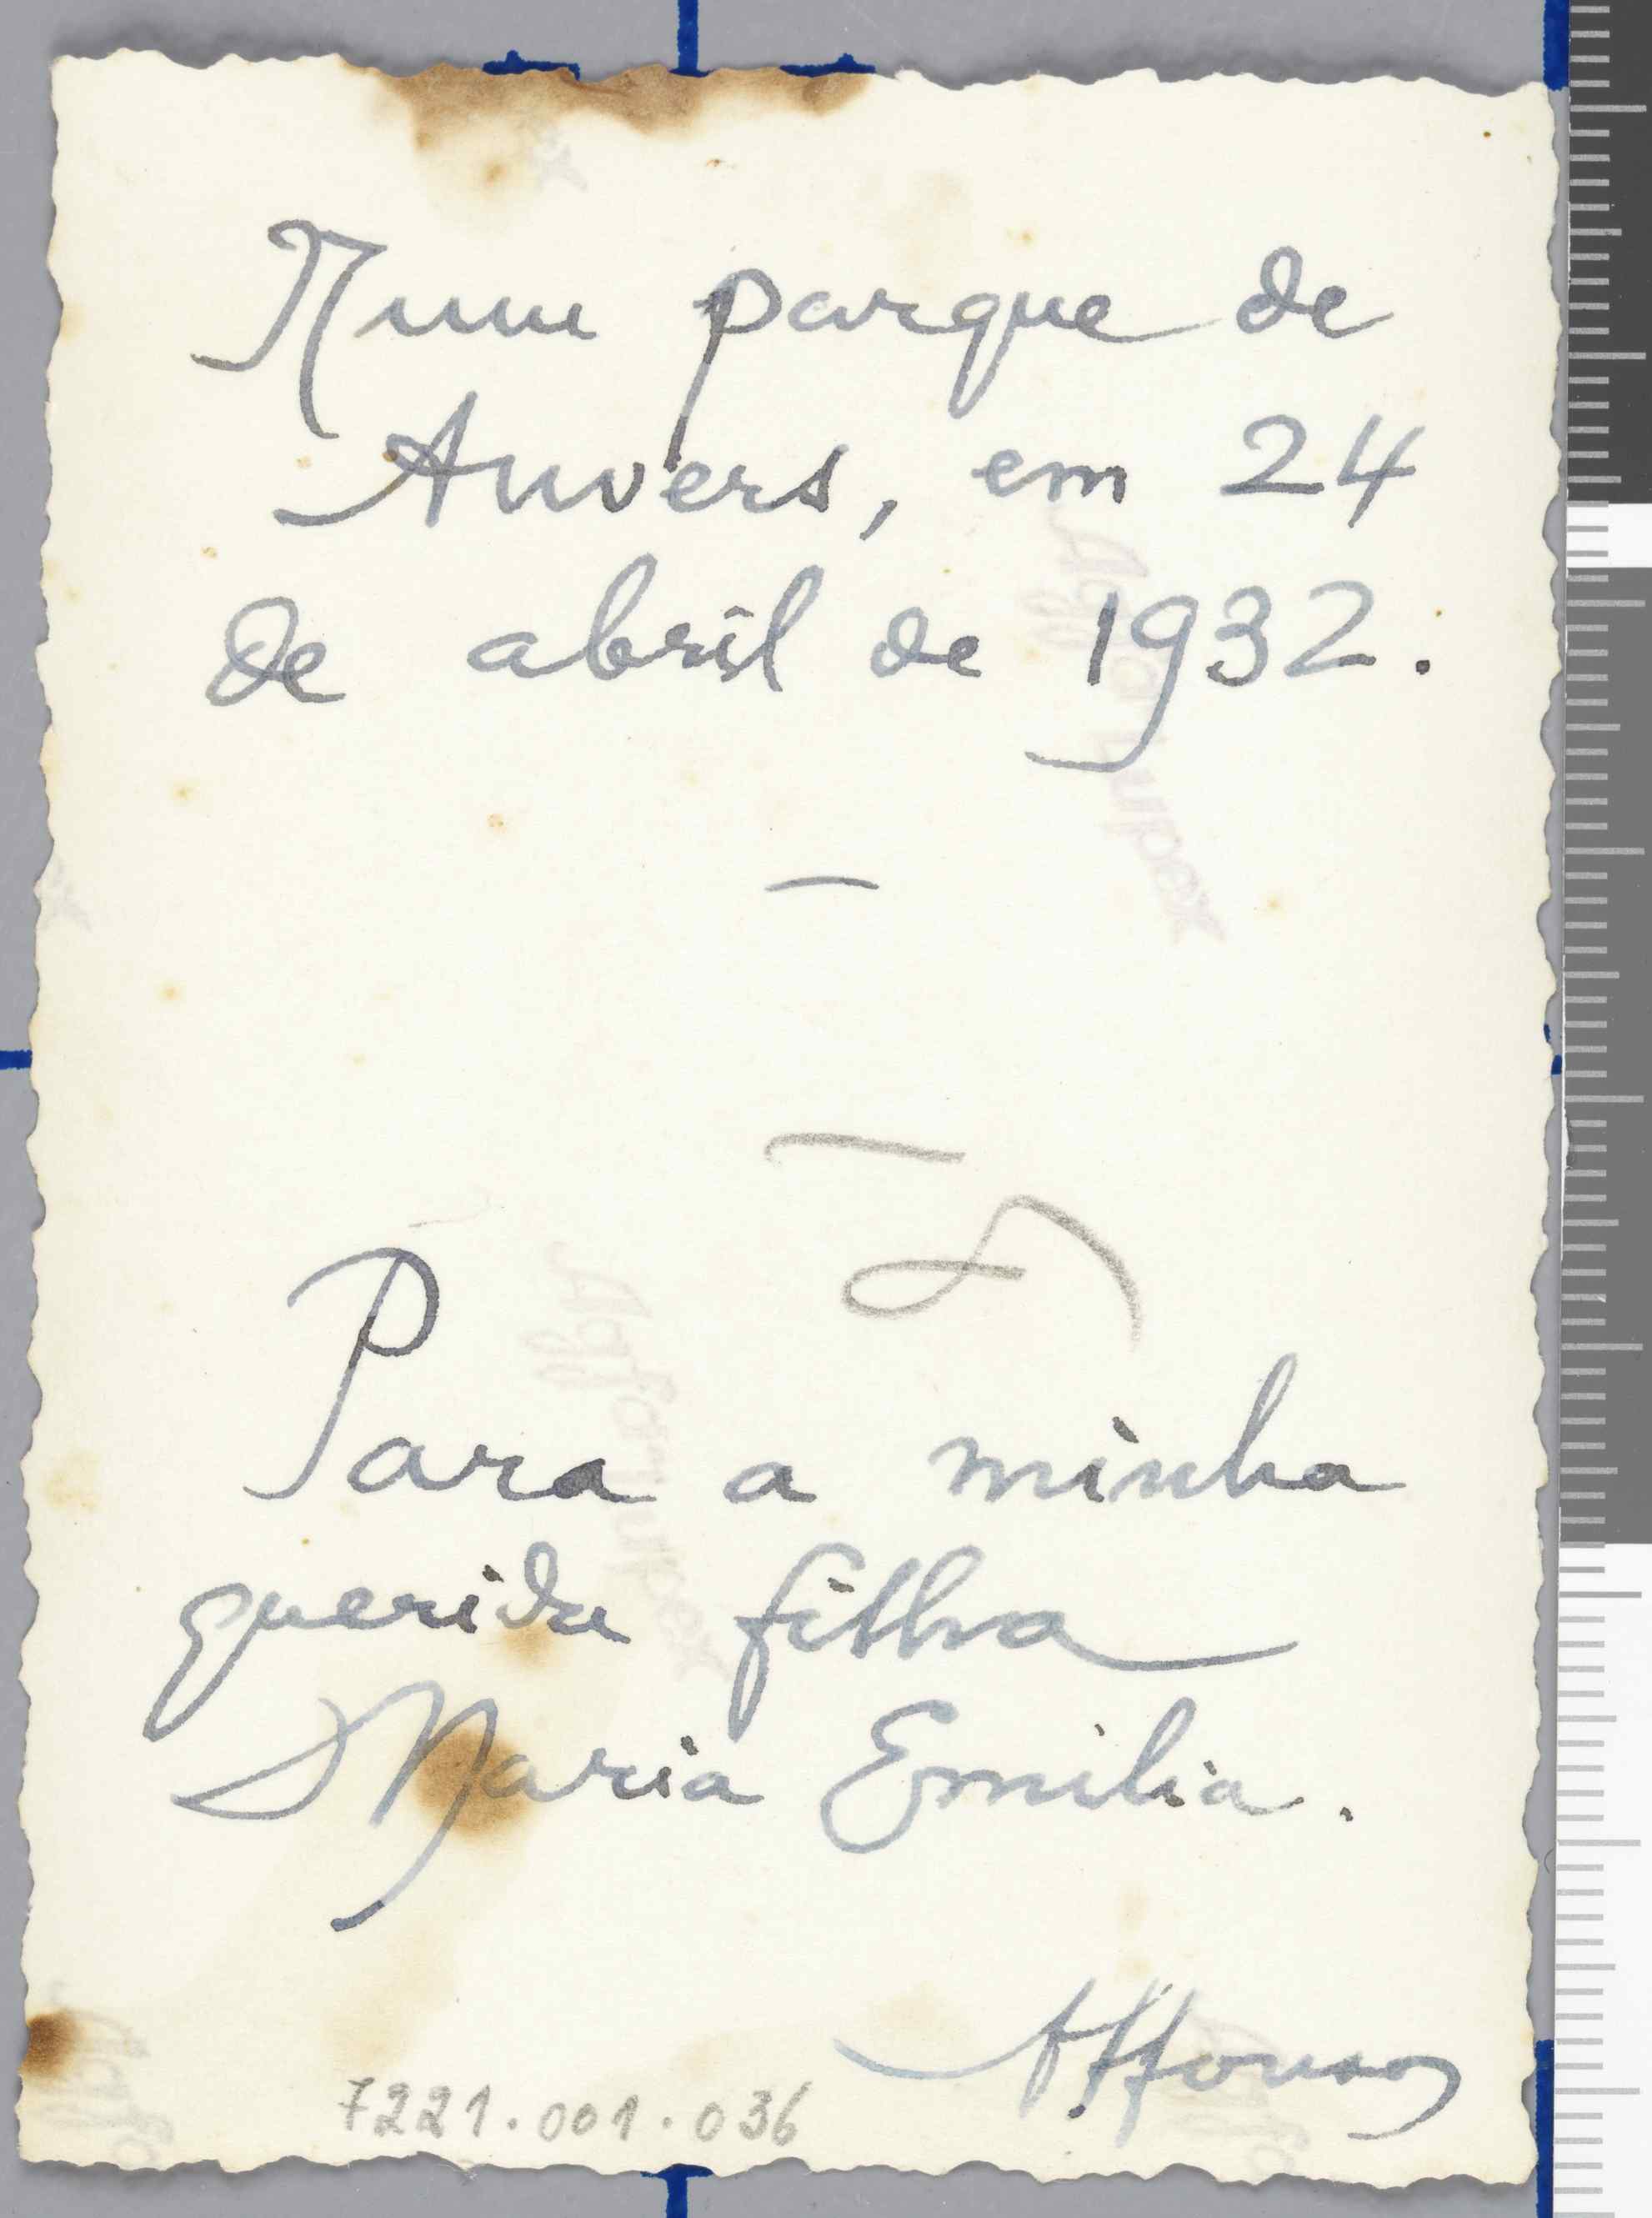 Num parque de
Anvers, em 24
de abril de 1932.
—
Para a minha
querida filha
Maria Emilia.
Affonso
7221.001.036
Agfa Lupex
Agfa Lupex